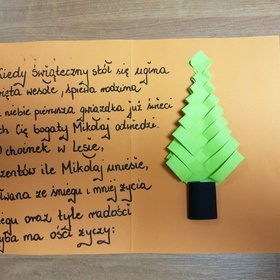 Kiedy świąteczny stół się ugina
święta wesołe, śpiewa rodzina
niebie pierwsza gwiazdka już świeci
ch Cię bogaty Mikołaj odwiedzi.
choinek w lesie,
zentów ile Mikołaj uniesie,
wana ze śniegu i mniej życia
iegu oraz tyle radości
yba ma ości życzy: